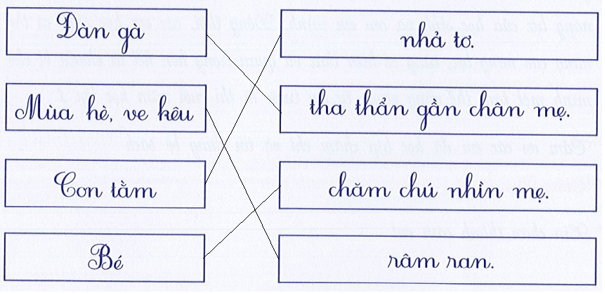 Đàn gà nhả tơ.
Mùa hè, ve kêu tha thẩn gần chân mẹ.
Con tằm chăm chú nhìn mẹ.
Bé râm ran.